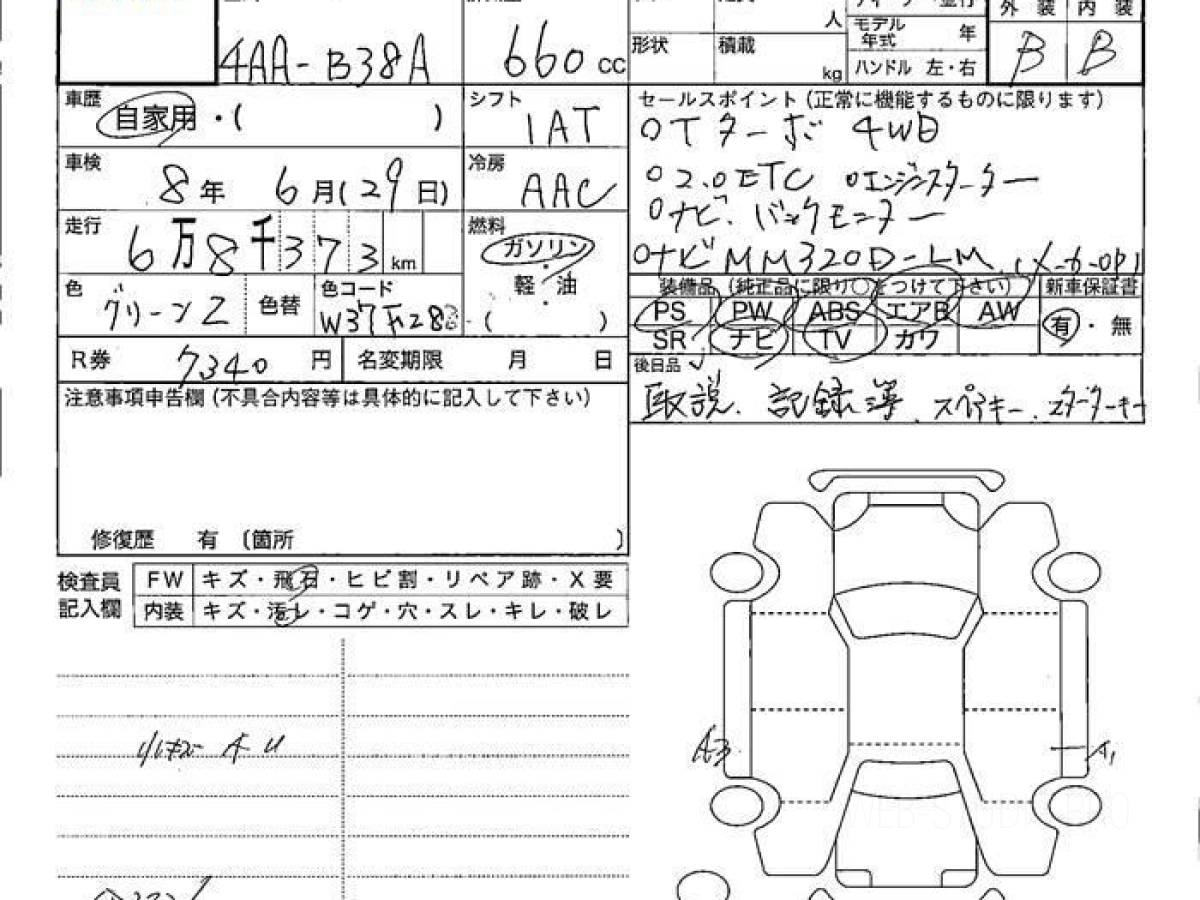 4AA-B38A
660 cc
人
形状 積載 kg
モデル年式 年
ハンドル 左・右
外装 内装
B B
車歴 自家用・( )
シフト IAT
車検 8年 6月(29日)
冷房 AAC
走行 6万8千373km
燃料 ガソリン・軽油・( )
色 グリーン2 色替 色コード
R券 7340円 名変期限 月 日
注意事項申告欄(不具合内容等は具体的に記入して下さい)
修復歴 有 〔箇所 〕
セールスポイント(正常に機能するものに限ります)
○Tターボ 4WD
○2.0ETC ○エンジンスターター
○ナビ.バックモニター
○ナビMM320D-LM
装備品(純正品に限り○をつけて下さい) 新車保証書
PS PW ABS エアB AW 有・無
SR ナビ TV カワ
後日品
取説.記録簿.スペアキー.スターターキー
検査員記入欄
FW キズ・飛石・ヒビ割・リペア跡・X要
内装 キズ・汚レ・コゲ・穴・スレ・キレ・破レ
AU
A3
A1